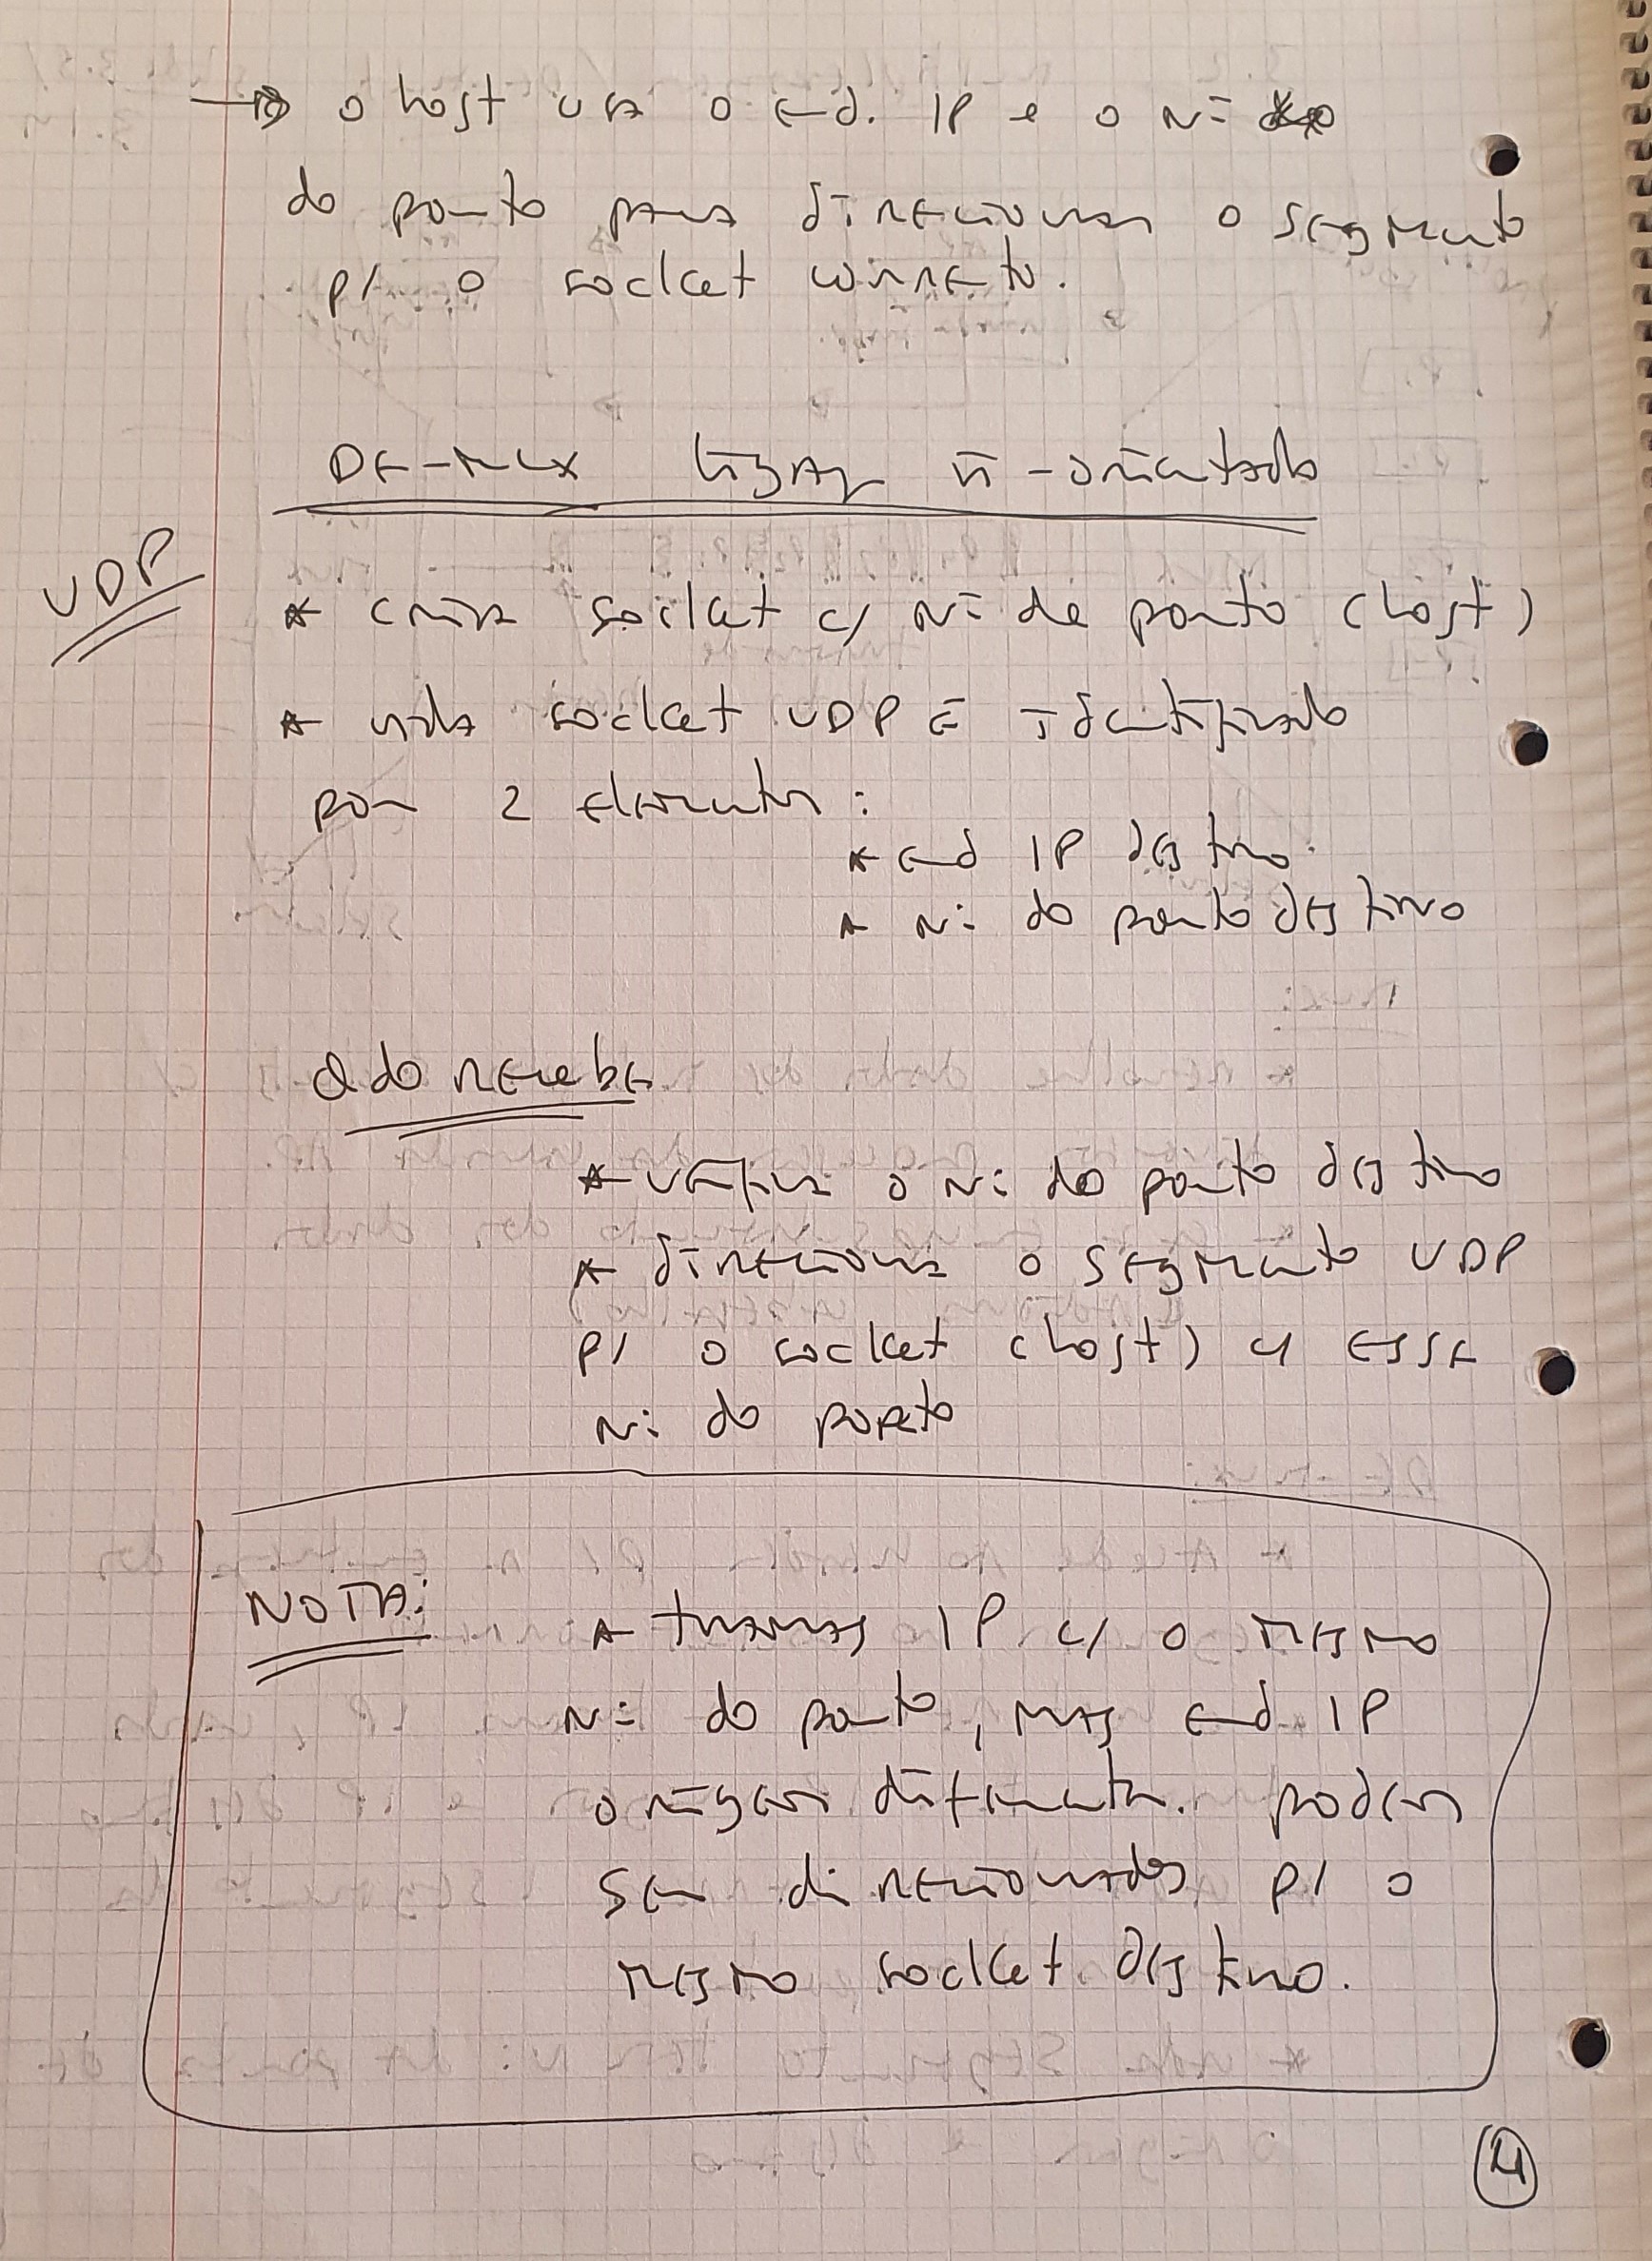 → o host usa o end. IP e o Nº
do porto para direcionar o segmento
p/ o socket correto.
DE-MUX ligaç ñ-orientado
UDP
* cria socket c/ Nº de porto (host)
* cada socket UDP é identificado
por 2 elementos:
* end IP destino.
* Nº do porto destino
Qdo recebe
* verifica o Nº do porto destino
* direciona o segmento UDP
p/ o socket (host) c/ esse
Nº do porto
NOTA:
* tramas IP c/ o mesmo
Nº do porto, mas end IP
origem diferentes. podem
ser direcionados p/ o
mesmo socket destino.